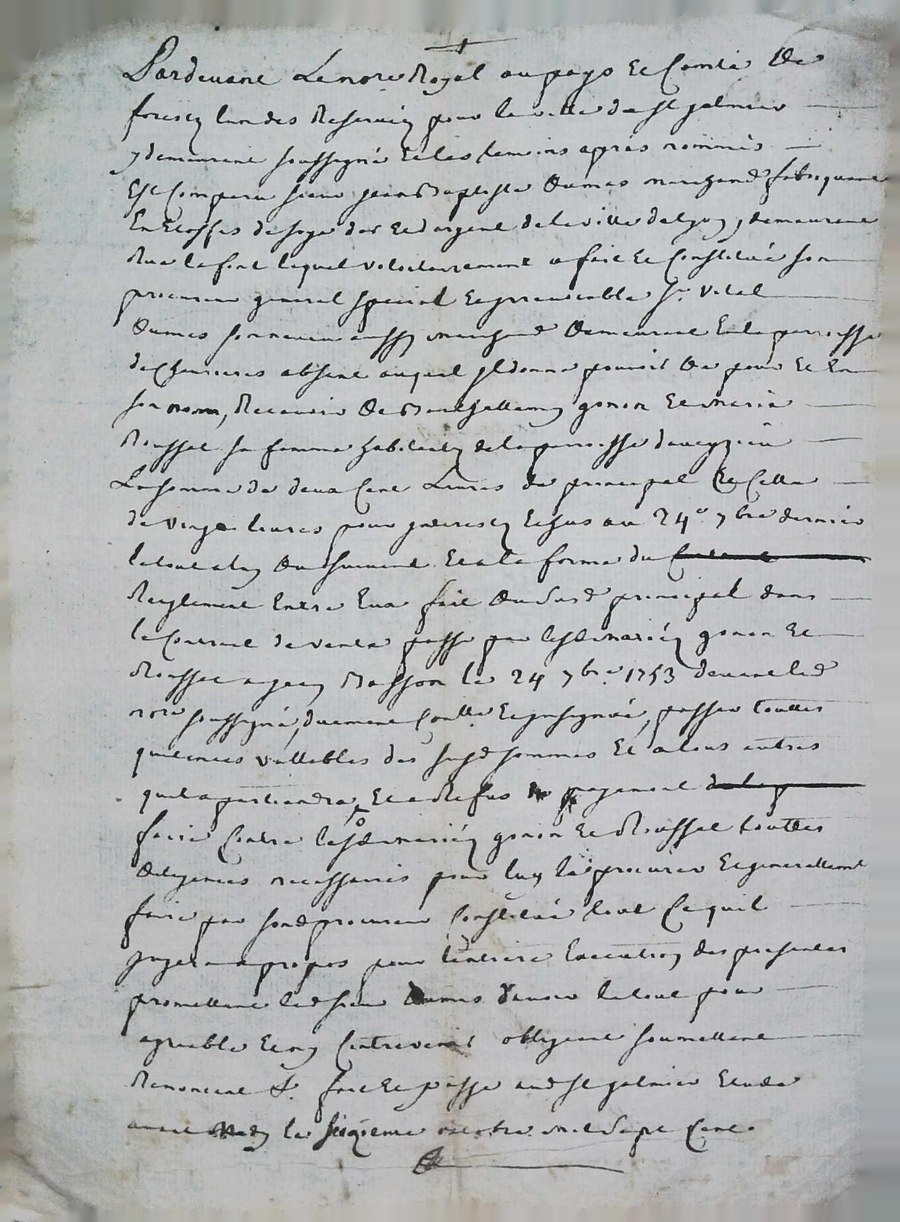 Pardevant Le nore Royal au pays Et Comté De
forest lun des Reservés pour la ville de st galmier
y demeurant soussigné Et les temoins après nommés
Est Comparu sieur jean Baptiste Dumas marchand fabriquant
En Etoffes de soye dor Et dargent de la ville de lyon y demeurant
Rue lafont lequel volontairement a fait Et Constitué son
procureur general special Et jrrevocable Sr. vital
Dumas son neveu aussy marchand Demeurant En la parroisse
de Chevrieres absent auquel jl donne pouvoir De pour Et En
son nom, Recevoir De Barthellemy gonon Et Marie
Roussel sa femme habitants de la parroisse daveyzieu
La somme de deux Cent Livres de principal Et Celle
de vingt livres pour jnterests Echus au 24e 7bre dernier
le tout En Conformité Et a la forme du
Reglement Entre Eux fait Du susd principal dans
le Contrat de vente passé par lesd mariés gonon Et
Roussel a jean Masson le 24 7bre 1753 devant led
nore soussigné, duement Conllé Et jnsignué, passer touttes
quittances vallables des susd sommes Et a tous autres
quil apartiendra, Et a Refus De payement
faire Contre lesd mariés gonon Et Roussel touttes
Diligences necessaires pour luy led procureur Et generallement
faire par sond procureur Constitué tout Ce quil
jugera a propos pour lentiere Execution des presentes
promettant led sieur Dumas davoir le tout pour
agreable Et ny Contrevenir obligeant soumettant
Renonceant &. fait Et passé aud st galmier Etude
avant midy le sixieme octobre mil sept Cent